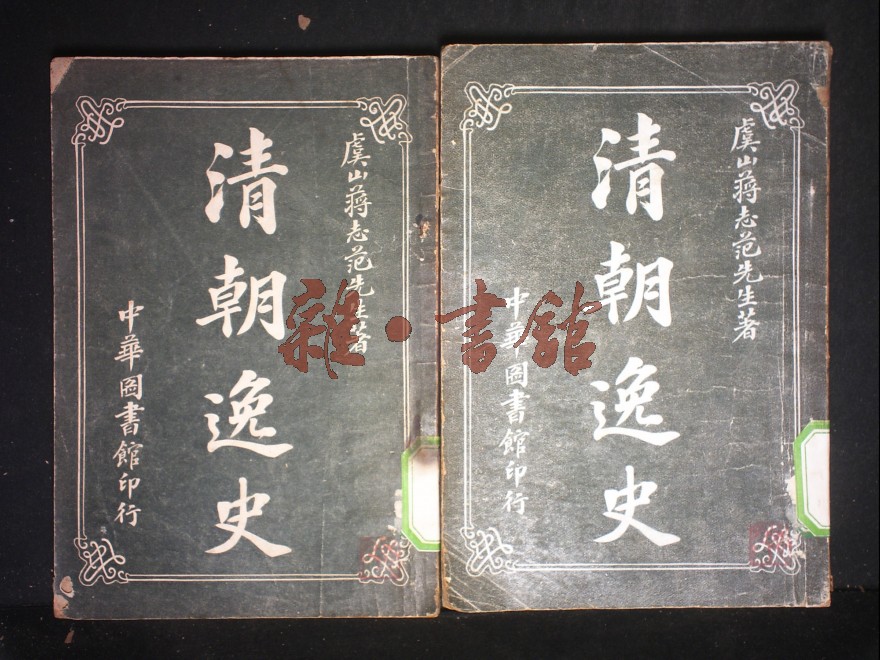 虞山蔣志范先生著
清朝逸史
中華圖書館印行
虞山蔣志范先生著
清朝逸史
中華圖書館印行
雜·書館